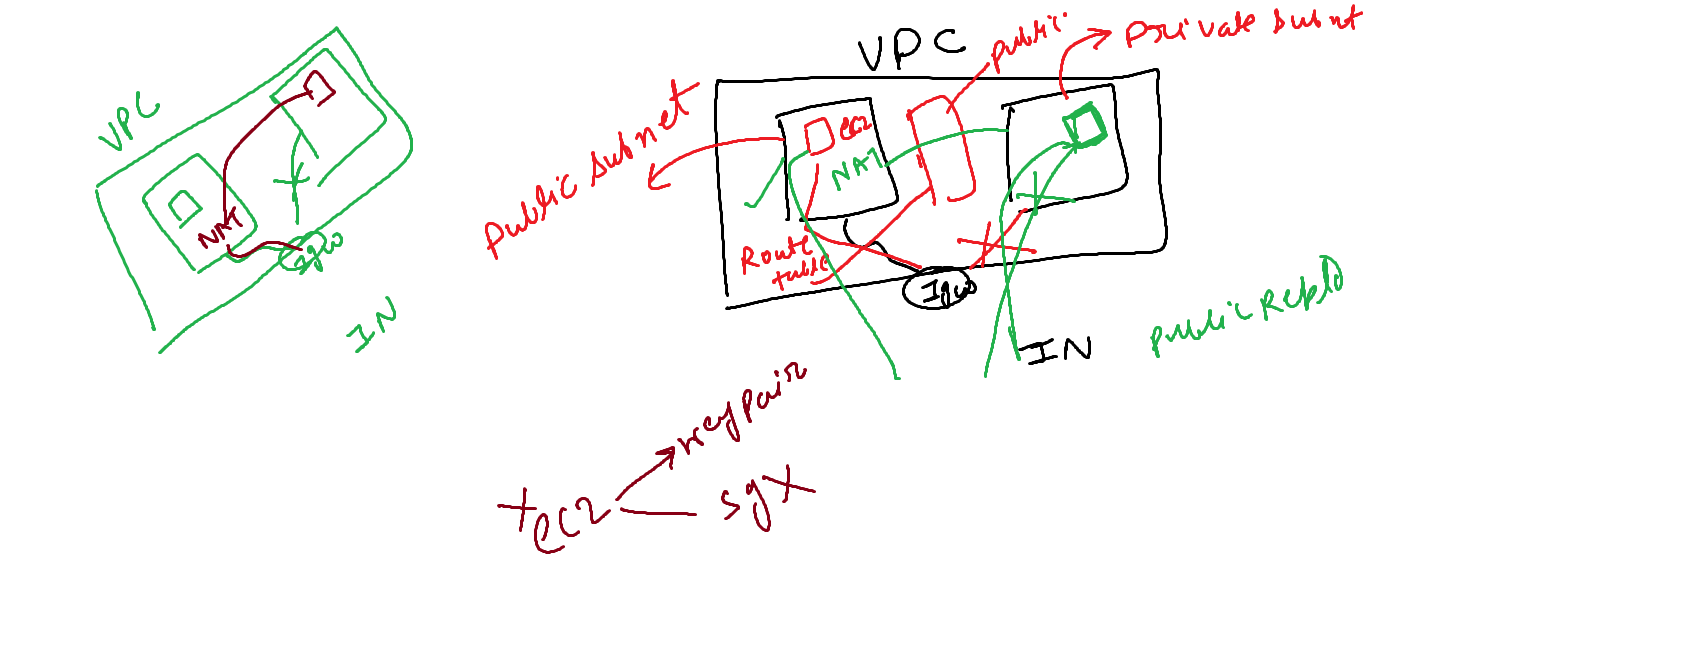 VPC
NAT
Igw
IN
VPC
public
private subnt
public subnet
EC2
NAT
Route
table
Igw
IN
public
keypair
EC2
sg